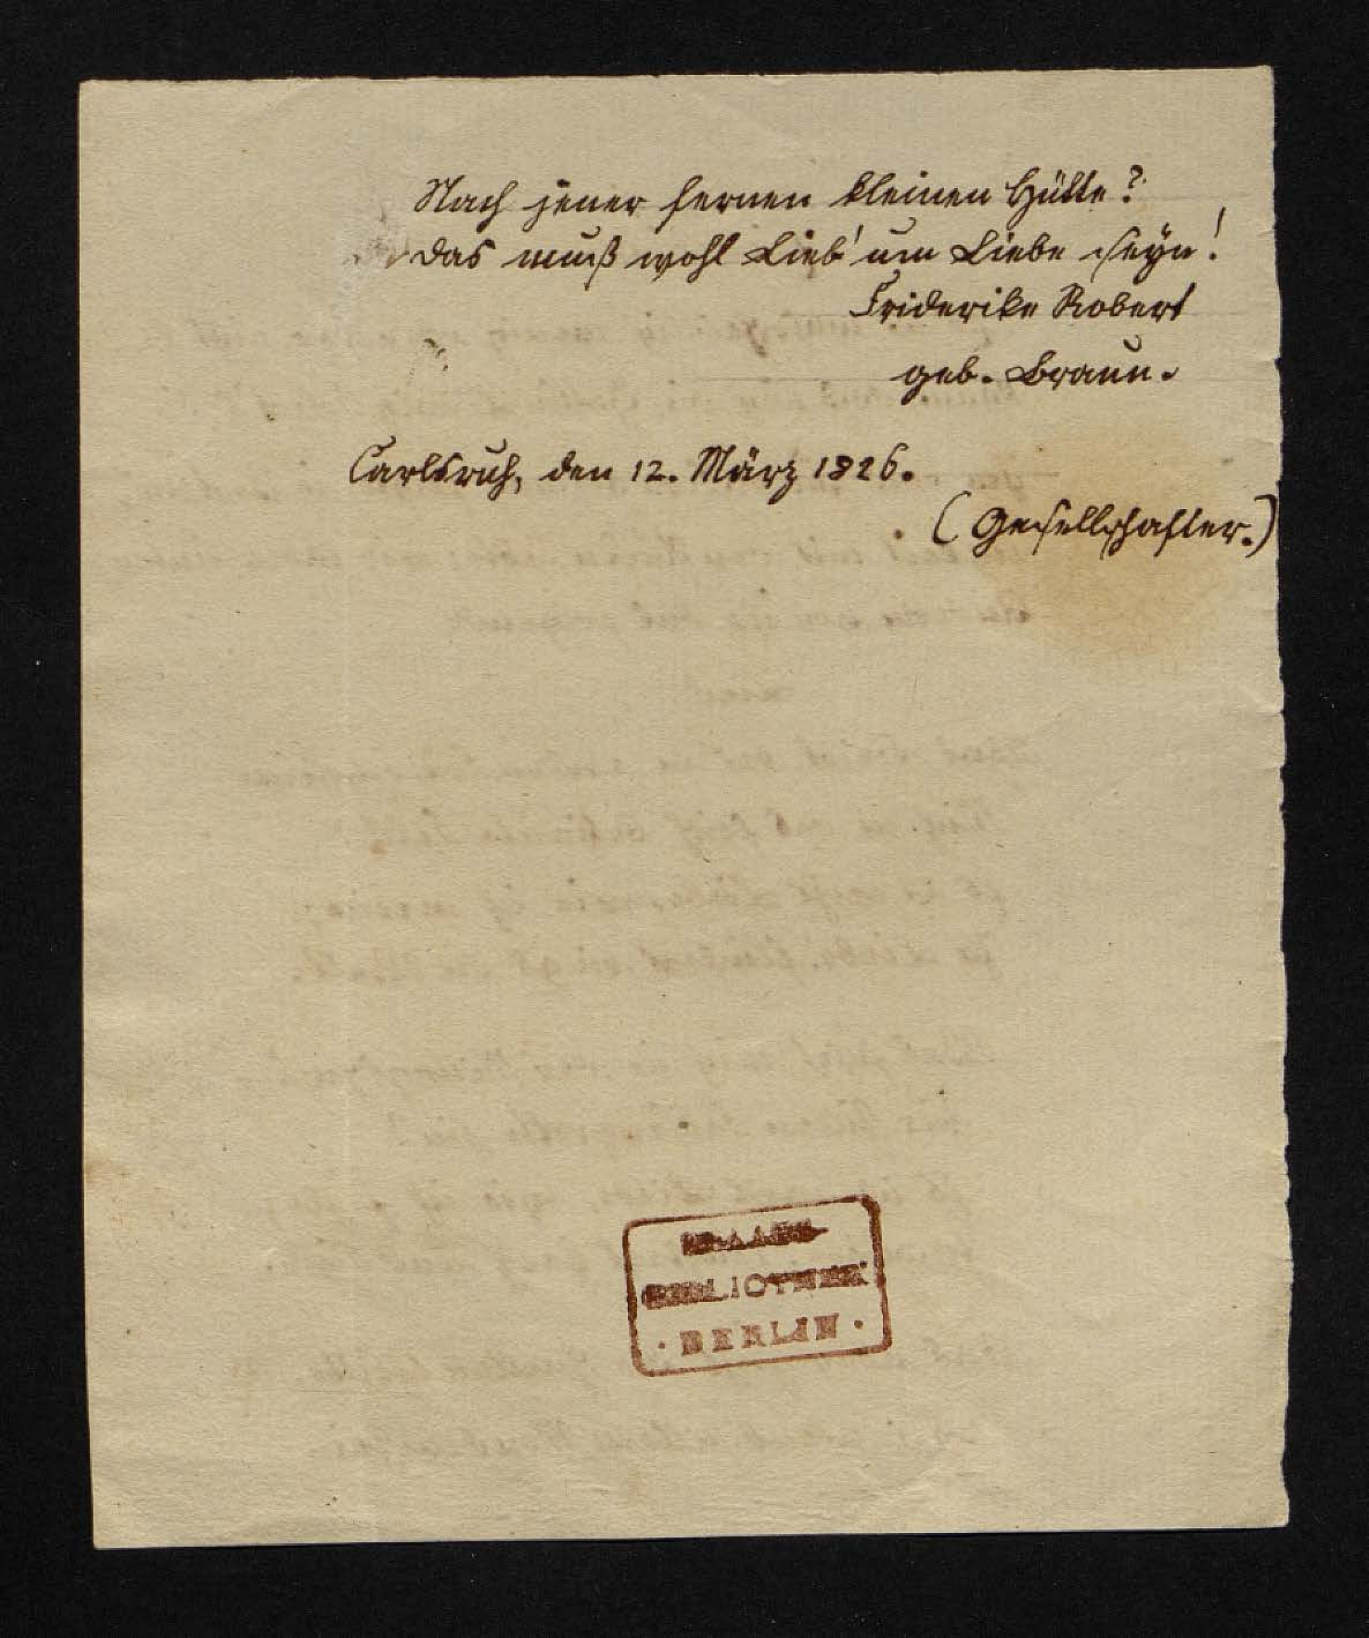 Nach jener fernen kleinen Hütte?
Das muß wohl Lieb' um Liebe seyn!
Friderike Robert
geb. Braun.
Carlsruh, den 12. März 1826.
(Gesellschafter.)
STAATS-
BIBLIOTHEK
· BERLIN ·